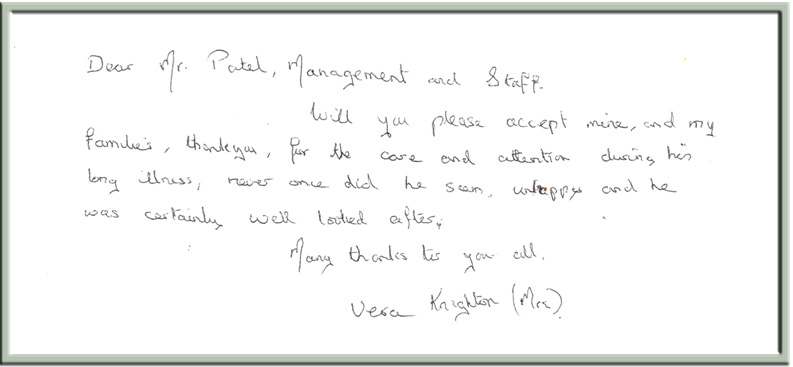 Dear Mr. Patel, Management and Staff.
Will you please accept mine, and my
families, thankyou, for the care and attention during his
long illness, never once did he seem, unhappy and he
was certainly well looked after,
Many thanks to you all.
Vera Knighton (Mrs)